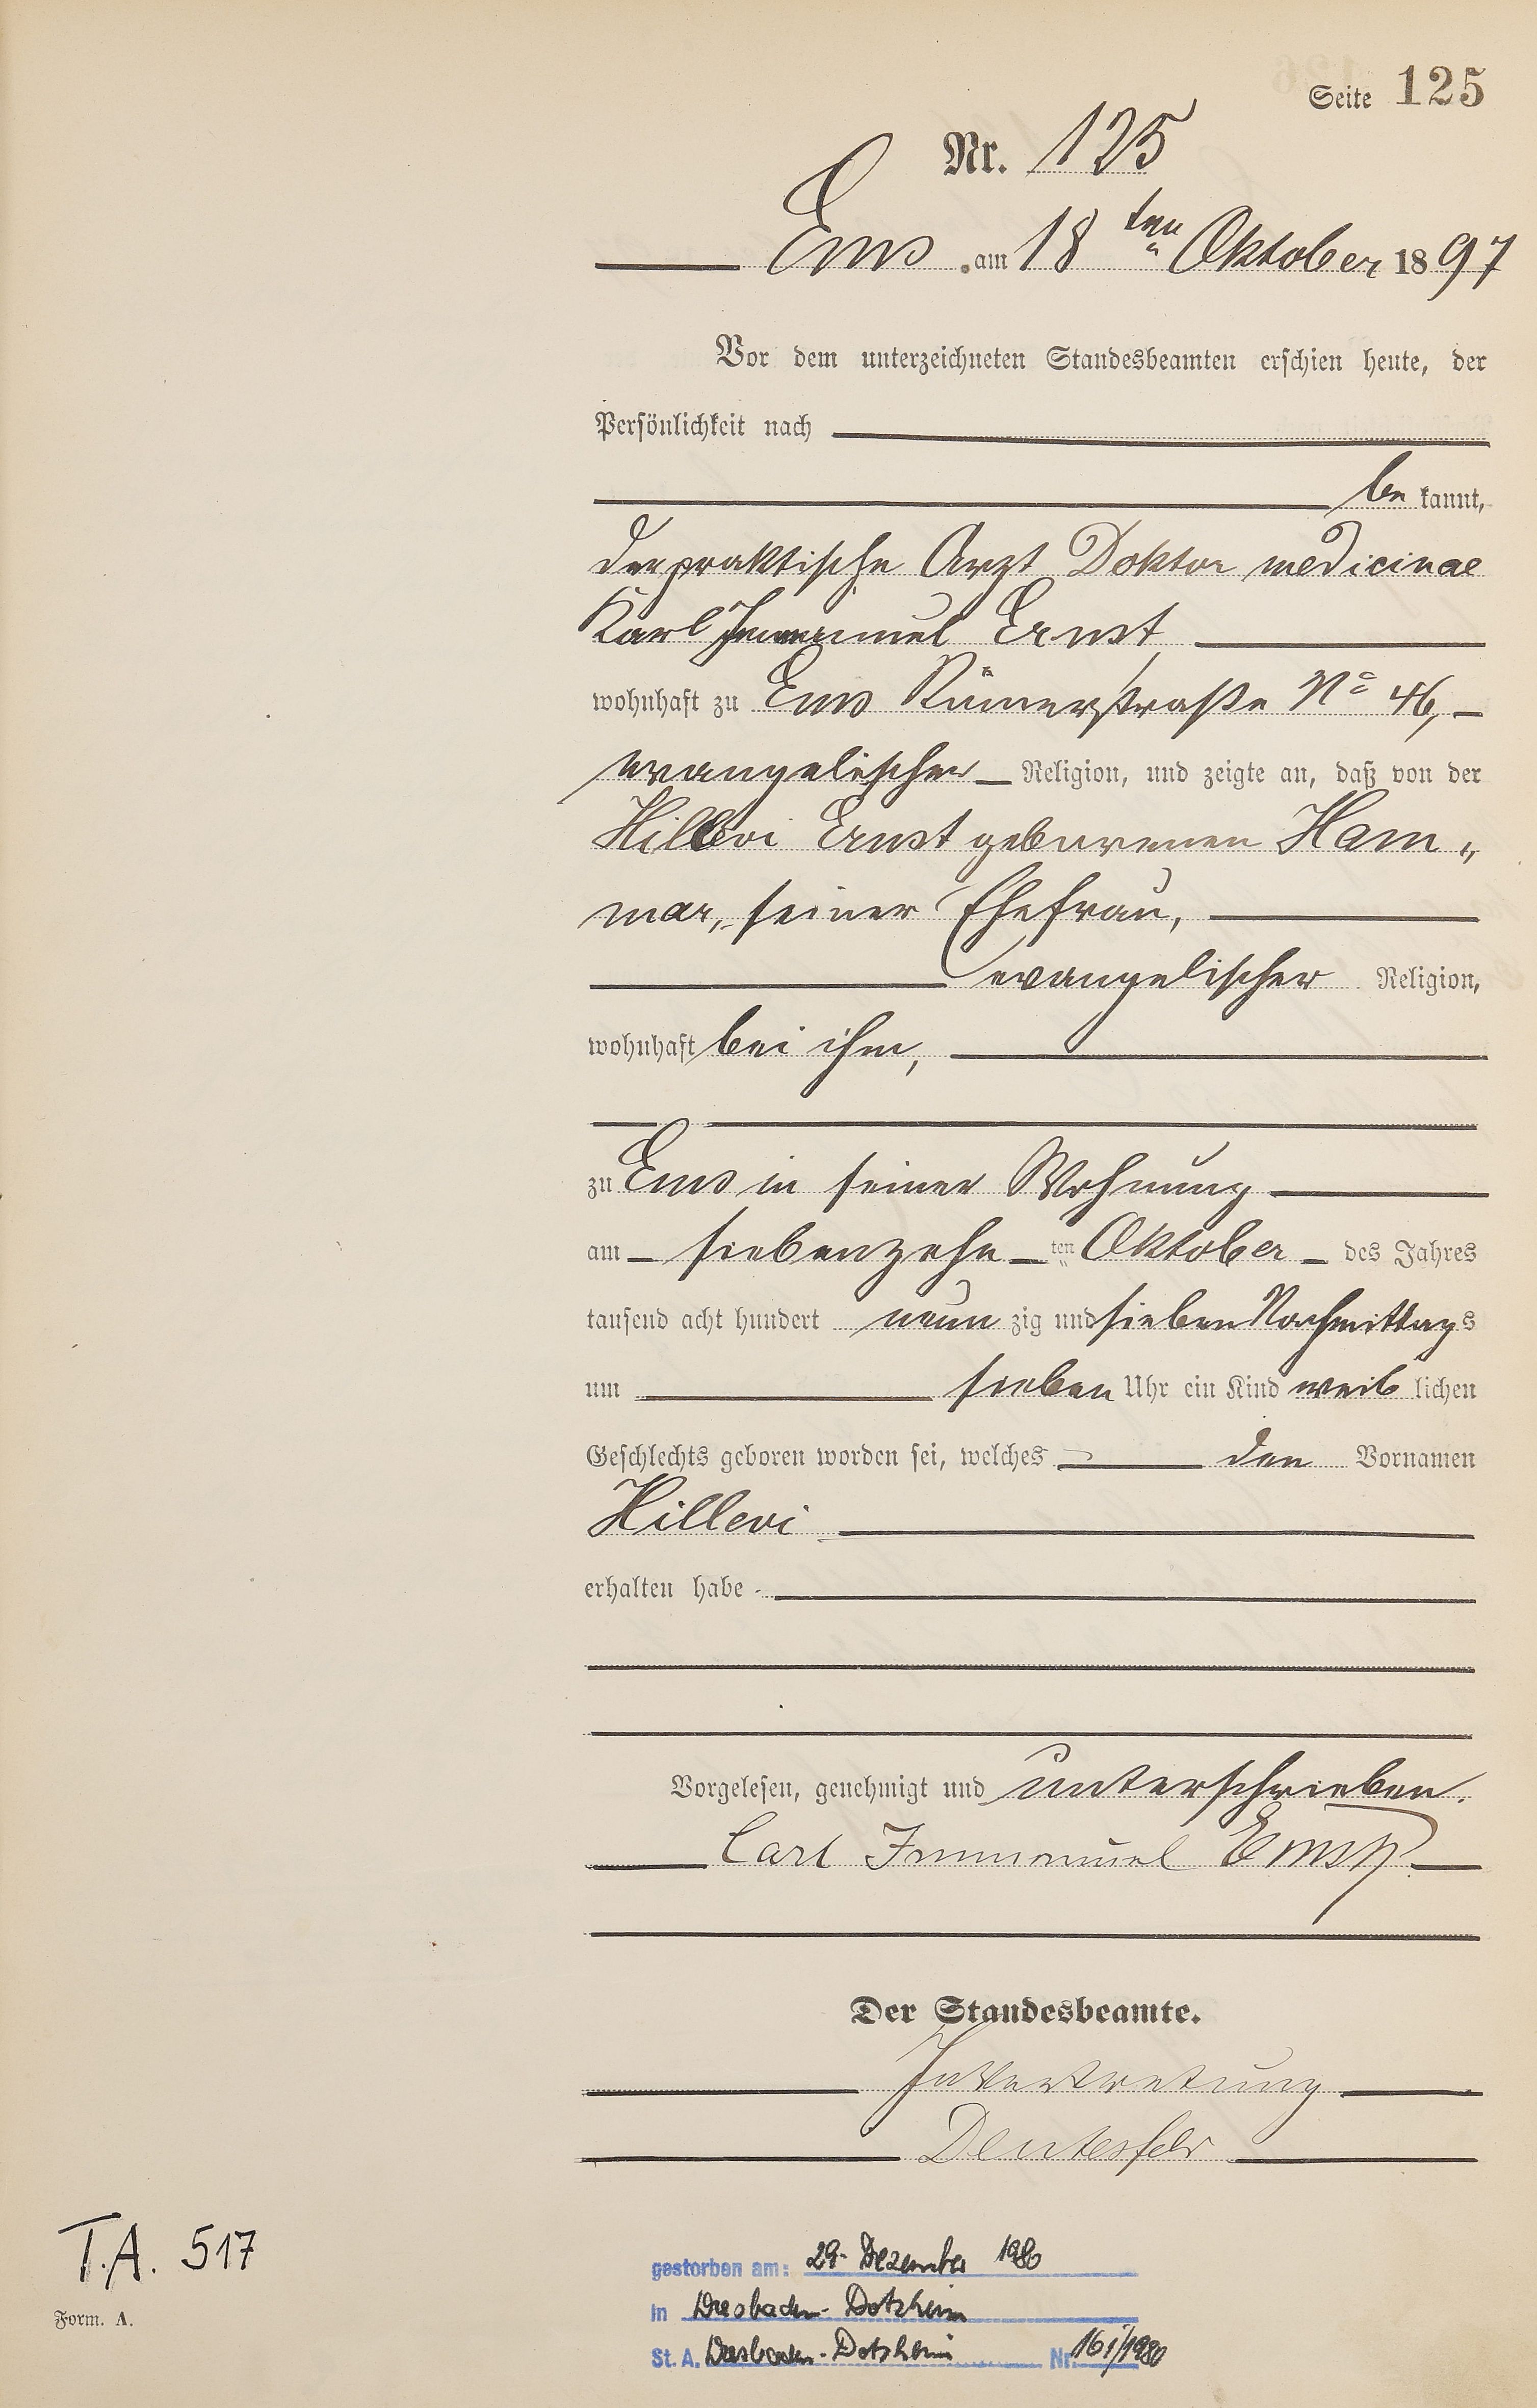 Seite 125
Nr. 125
Ems am 18ten Oktober 1897
Vor dem unterzeichneten Standesbeamten erschien heute, der
Persönlichkeit nach
be kannt,
der praktische Arzt Doktor medicinae
Karl Immanuel Ernst
wohnhaft zu Ems Römerstraße No 46,
evangelischer Religion, und zeigte an, daß von der
Hillevi Ernst geborenen Ham„
mar, seiner Ehefrau,
evangelischer Religion,
wohnhaft bei ihm,
zu Ems in seiner Wohnung
am siebenzehn ten Oktober des Jahres
tausend acht hundert neun zig und sieben Nachmittags
um sieben Uhr ein Kind weib lichen
Geschlechts geboren worden sei, welches den Vornamen
Hillevi
erhalten habe
Vorgelesen, genehmigt und unterschrieben.
Carl Immanuel Ernst
Der Standesbeamte.
In Vertretung
T.A. 517
Form. A.
gestorben am: 29. Dezember 1980
in Wiesbaden-Dotzheim
St. A. Wiesbaden-Dotzheim Nr. 161/1980